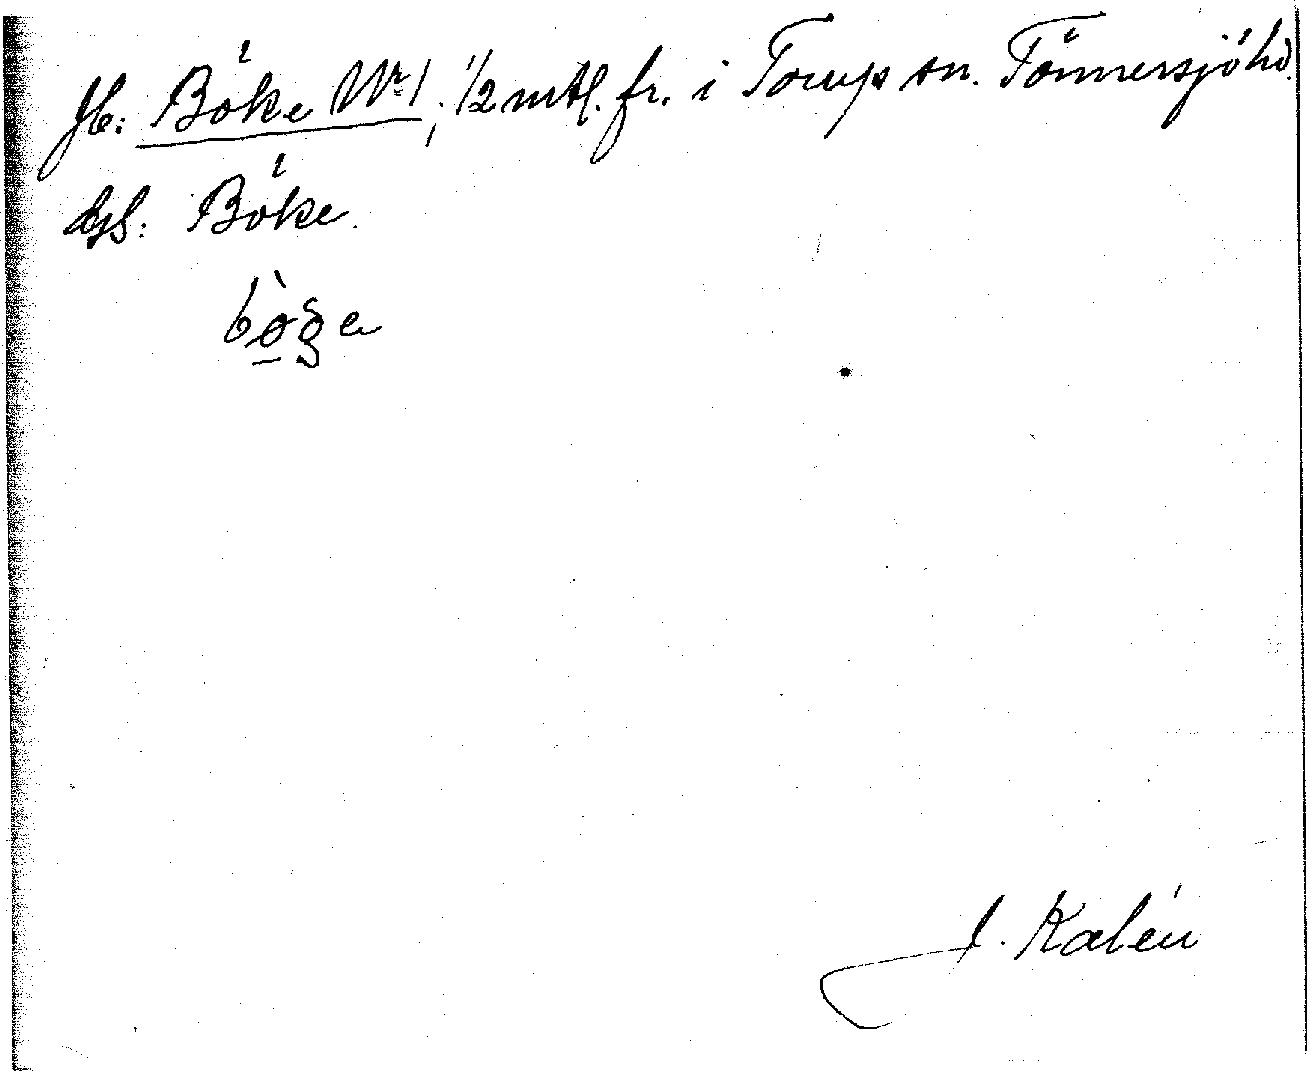 Jb: Böke Nr 1, 1/2 mtl. fr. i Torup sn. Tönnersjöhd.
dsb: Böke.
bö̀ge
J. Kalén